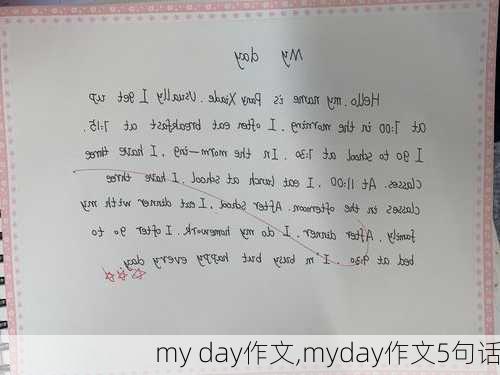 My day
Hello, my name is Pany Xiade. Usually I get up
at 7:00 in the morning. I often eat breakfast at 7:15.
I go to school at 7:30. In the morn—ing, I have three
classes. At 11:00, I eat lunch at school. I have three
classes in the afternoon. After school, I eat dinner with my
family. After dinner, I do my homework. I often go to
bed at 9:30. I'm busy but happy every day
my day作文,myday作文5句话